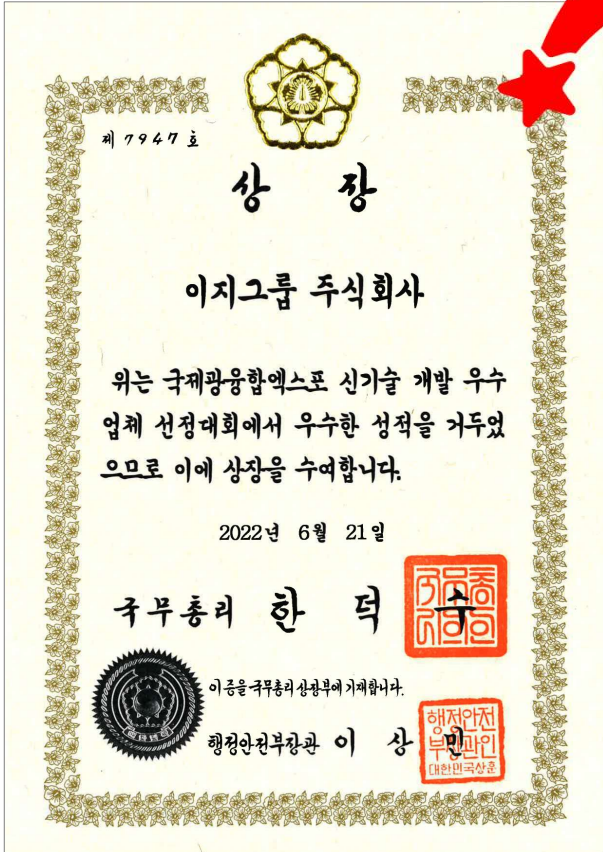 제 7947 호
상 장
이지그룹 주식회사
위는 국제광융합엑스포 신기술 개발 우수
업체 선정대회에서 우수한 성적을 거두었
으므로 이에 상장을 수여합니다.
2022년 6월 21일
국무총리 한 덕 수
이 증을 국무총리 상장부에 기재합니다.
행정안전부장관 이 상 민
행정안전
부장관인
대한민국상훈